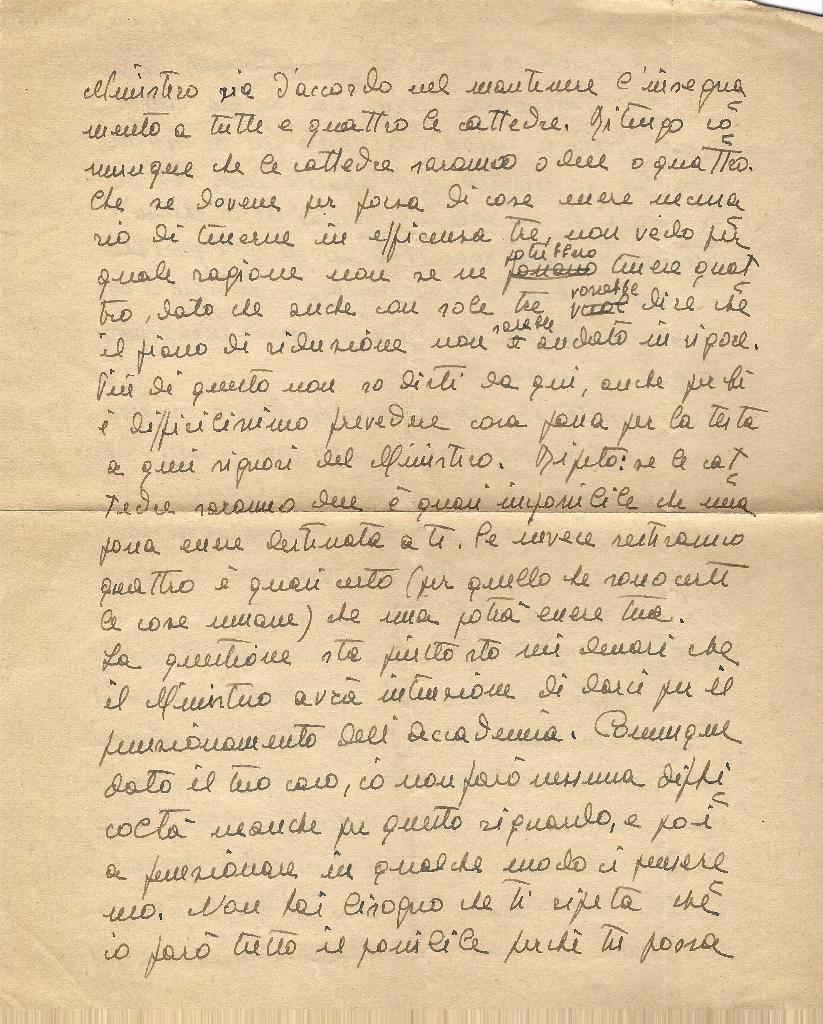 Ministero sia d'accordo nel mantenere l'insegna
mento a tutte e quattro le cattedre. Ritengo co=
munque che le cattedre saranno o due o quattro.
Che se dovesse per forza di cose essere necessa
rio di tenerne in efficenza tre, non vedo per
quale ragione non se ne potessero tenere quat
tro, dato che anche con sole tre vorrebbe dire che
il piano di riduzione non sarebbe andato in vigore.
Più di questo non so dirti da qui, anche perchè
è difficilissimo prevedere cosa passa per la testa
a quei signori del Ministero. Ripeto: se le cat=
tedre saranno due è quasi impossibile che una
possa essere destinata a te. Se invece resteranno
quattro è quasi certo (per quello che sono certe
le cose umane) che una potrà essere tua.
La questione sta piuttosto nei denari che
il Ministero avrà intenzione di darci per il
funzionamento dell'Accademia. Comunque
dato il tuo caso, io non farò nessuna diffi=
coltà neanche per questo riguardo, e poi
a funzionare in qualche modo ci pensere=
mo. Non hai bisogno che ti ripeta che
io farò tutto il possibile perchè tu possa